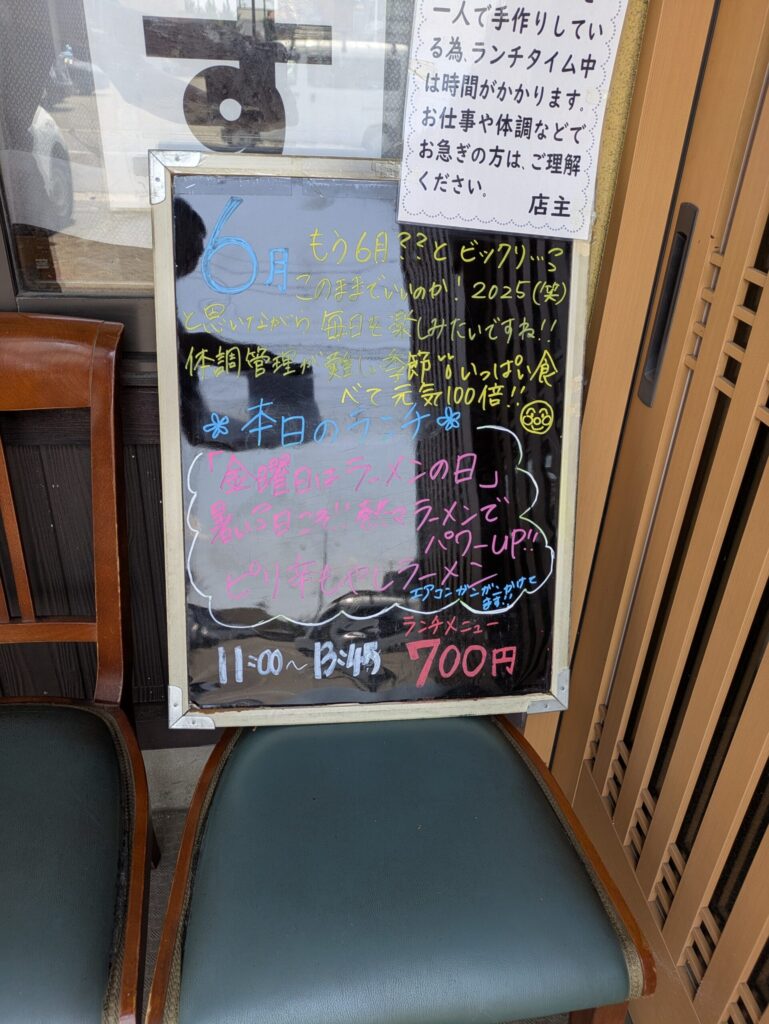 す
一人で手作りしてい
る為、ランチタイム中
は時間がかかります。
お仕事や体調などで
お急ぎの方は、ご理解
ください。
店主
6月
もう6月??とビックリ…
このままでいいのか!2025(笑)
と思いながら毎日を楽しみたいですね!!
体調管理が難しい季節いっぱい食
べて元気100倍!!
本日のランチ
「金曜日はラーメンの日」
暑い日こそ!!ラーメンで
パワーUP!!
ピリ辛もやしラーメン
エアコンガンガンかけて
ます!!
ランチメニュー
11:00〜13:45
700円